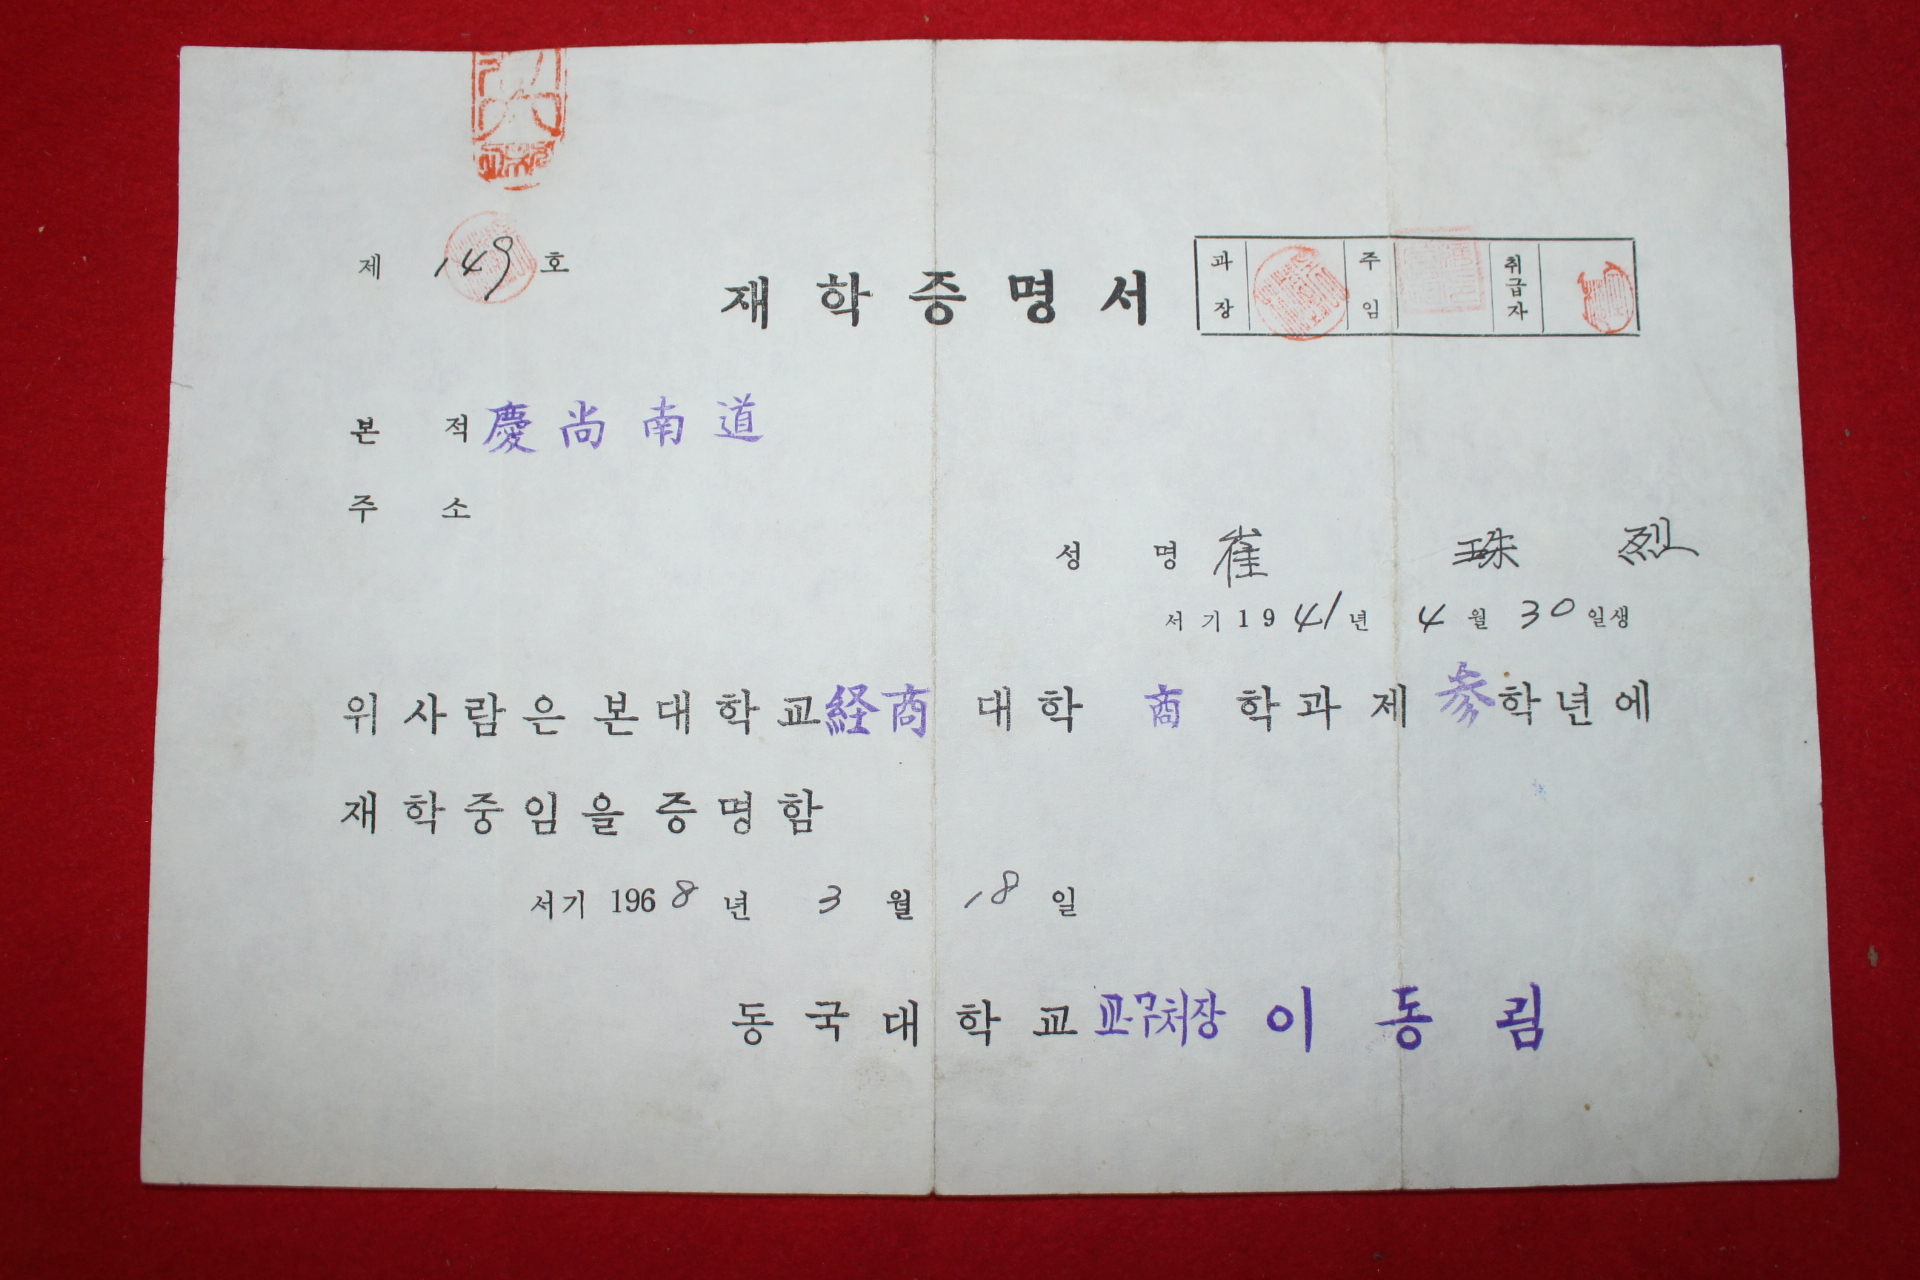 제 149 호
재학증명서
과장 주임 취급자
본 적 慶尚南道
주 소
성 명 崔 珠 烈
서기 1941년 4월 30일생
위 사람은 본 대학교 経商 대학 商 학과 제 参 학년에
재학중임을 증명함
서기 1968년 3월 18일
동국대학교 교무처장 이동림